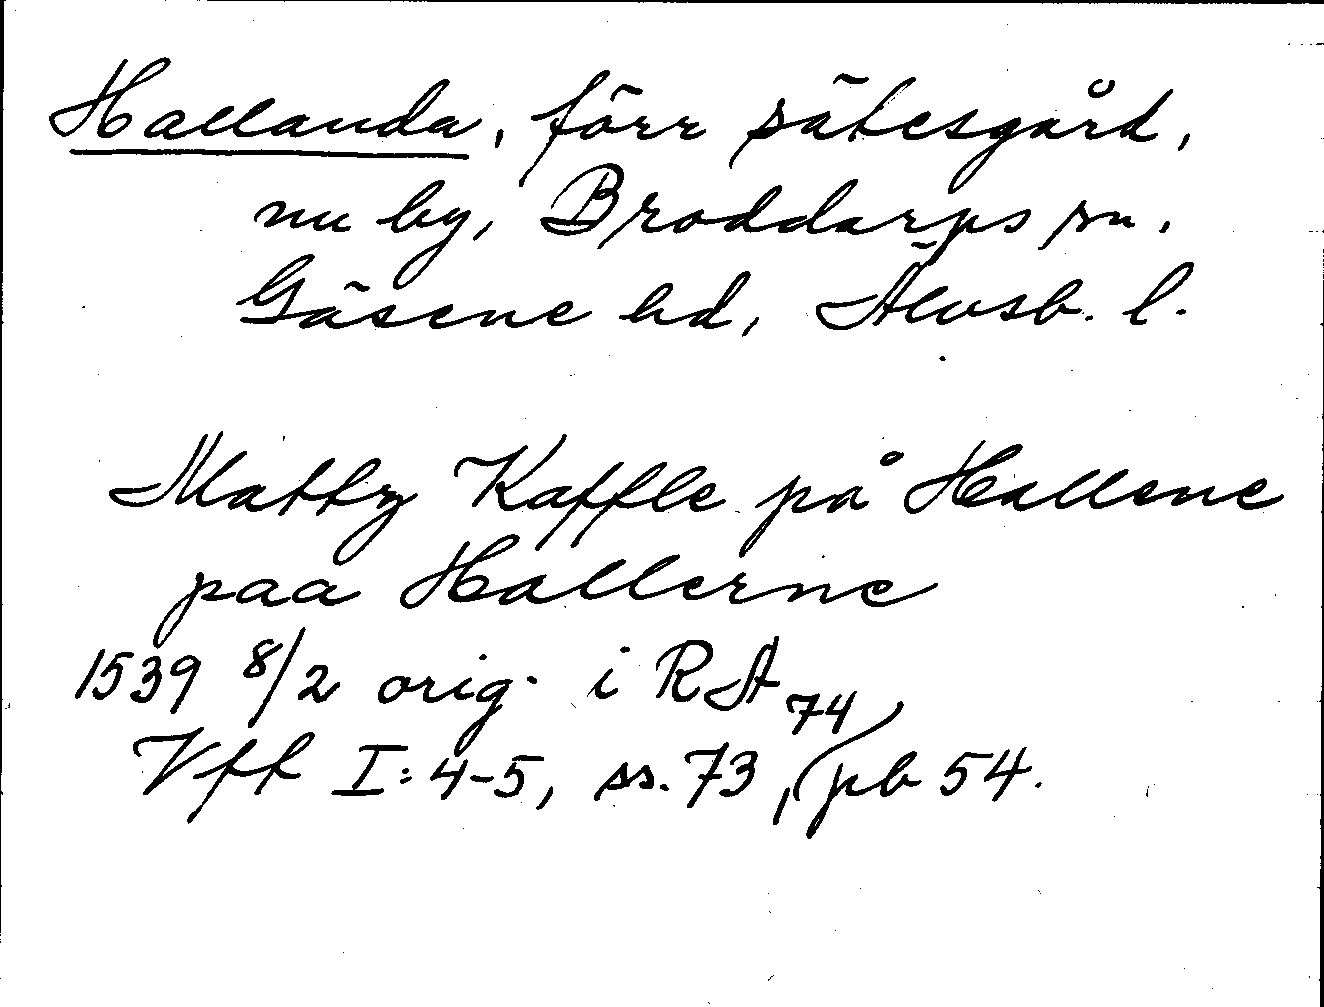 Hallanda, förr sätesgård,
nu by, Broddarps sn.
Gäsene hd, Älvsb. l.
Mattz Kaffle på Hallene
paa Hallerne
1539 8/2 orig. i RA
Vff I: 4-5, ss. 73, 74, pb 54.